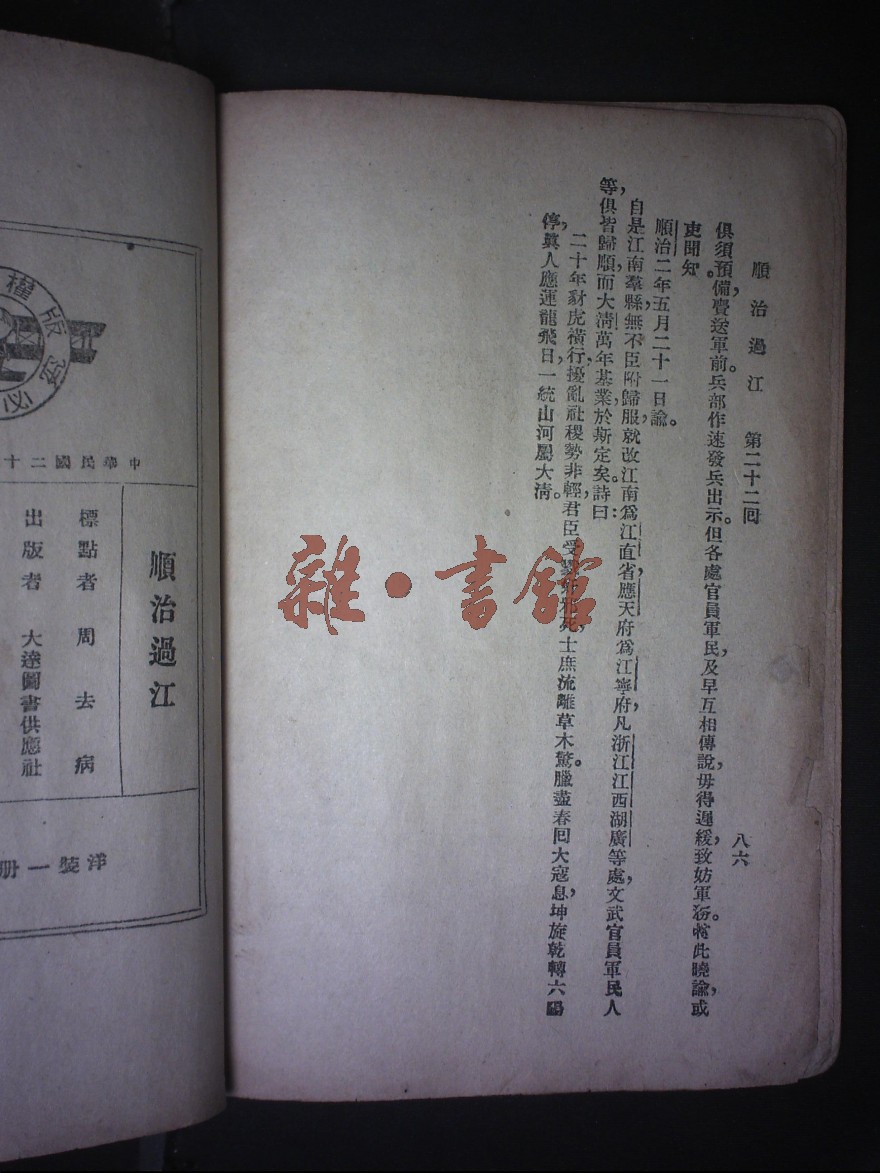 順治過江　第二十二回　八六
俱須預備，賫送軍前。兵部作速發兵出示。但各處官員軍民，及早互相傳說，毋得遲緩，致妨軍務。特此曉諭，或
吏聞知。
順治二年五月二十一日諭。
自是江南羣縣，無不臣附歸服，就改江南爲江直省，應天府爲江寧府，凡浙江江西湖廣等處，文武官員軍民人
等，俱皆歸順，而大清萬年基業，於斯定矣。詩曰：
二十年豺虎橫行，擾亂社稷勢非輕，君臣受 士庶流離草木驚。臘盡春回大寇息，坤旋乾轉六陽
停，眞人應運龍飛日，一統山河屬大清。
雜·書館
權版
究必
中華民國二十
順治過江
標點者　周去病
出版者　大達圖書供應社
洋裝一册